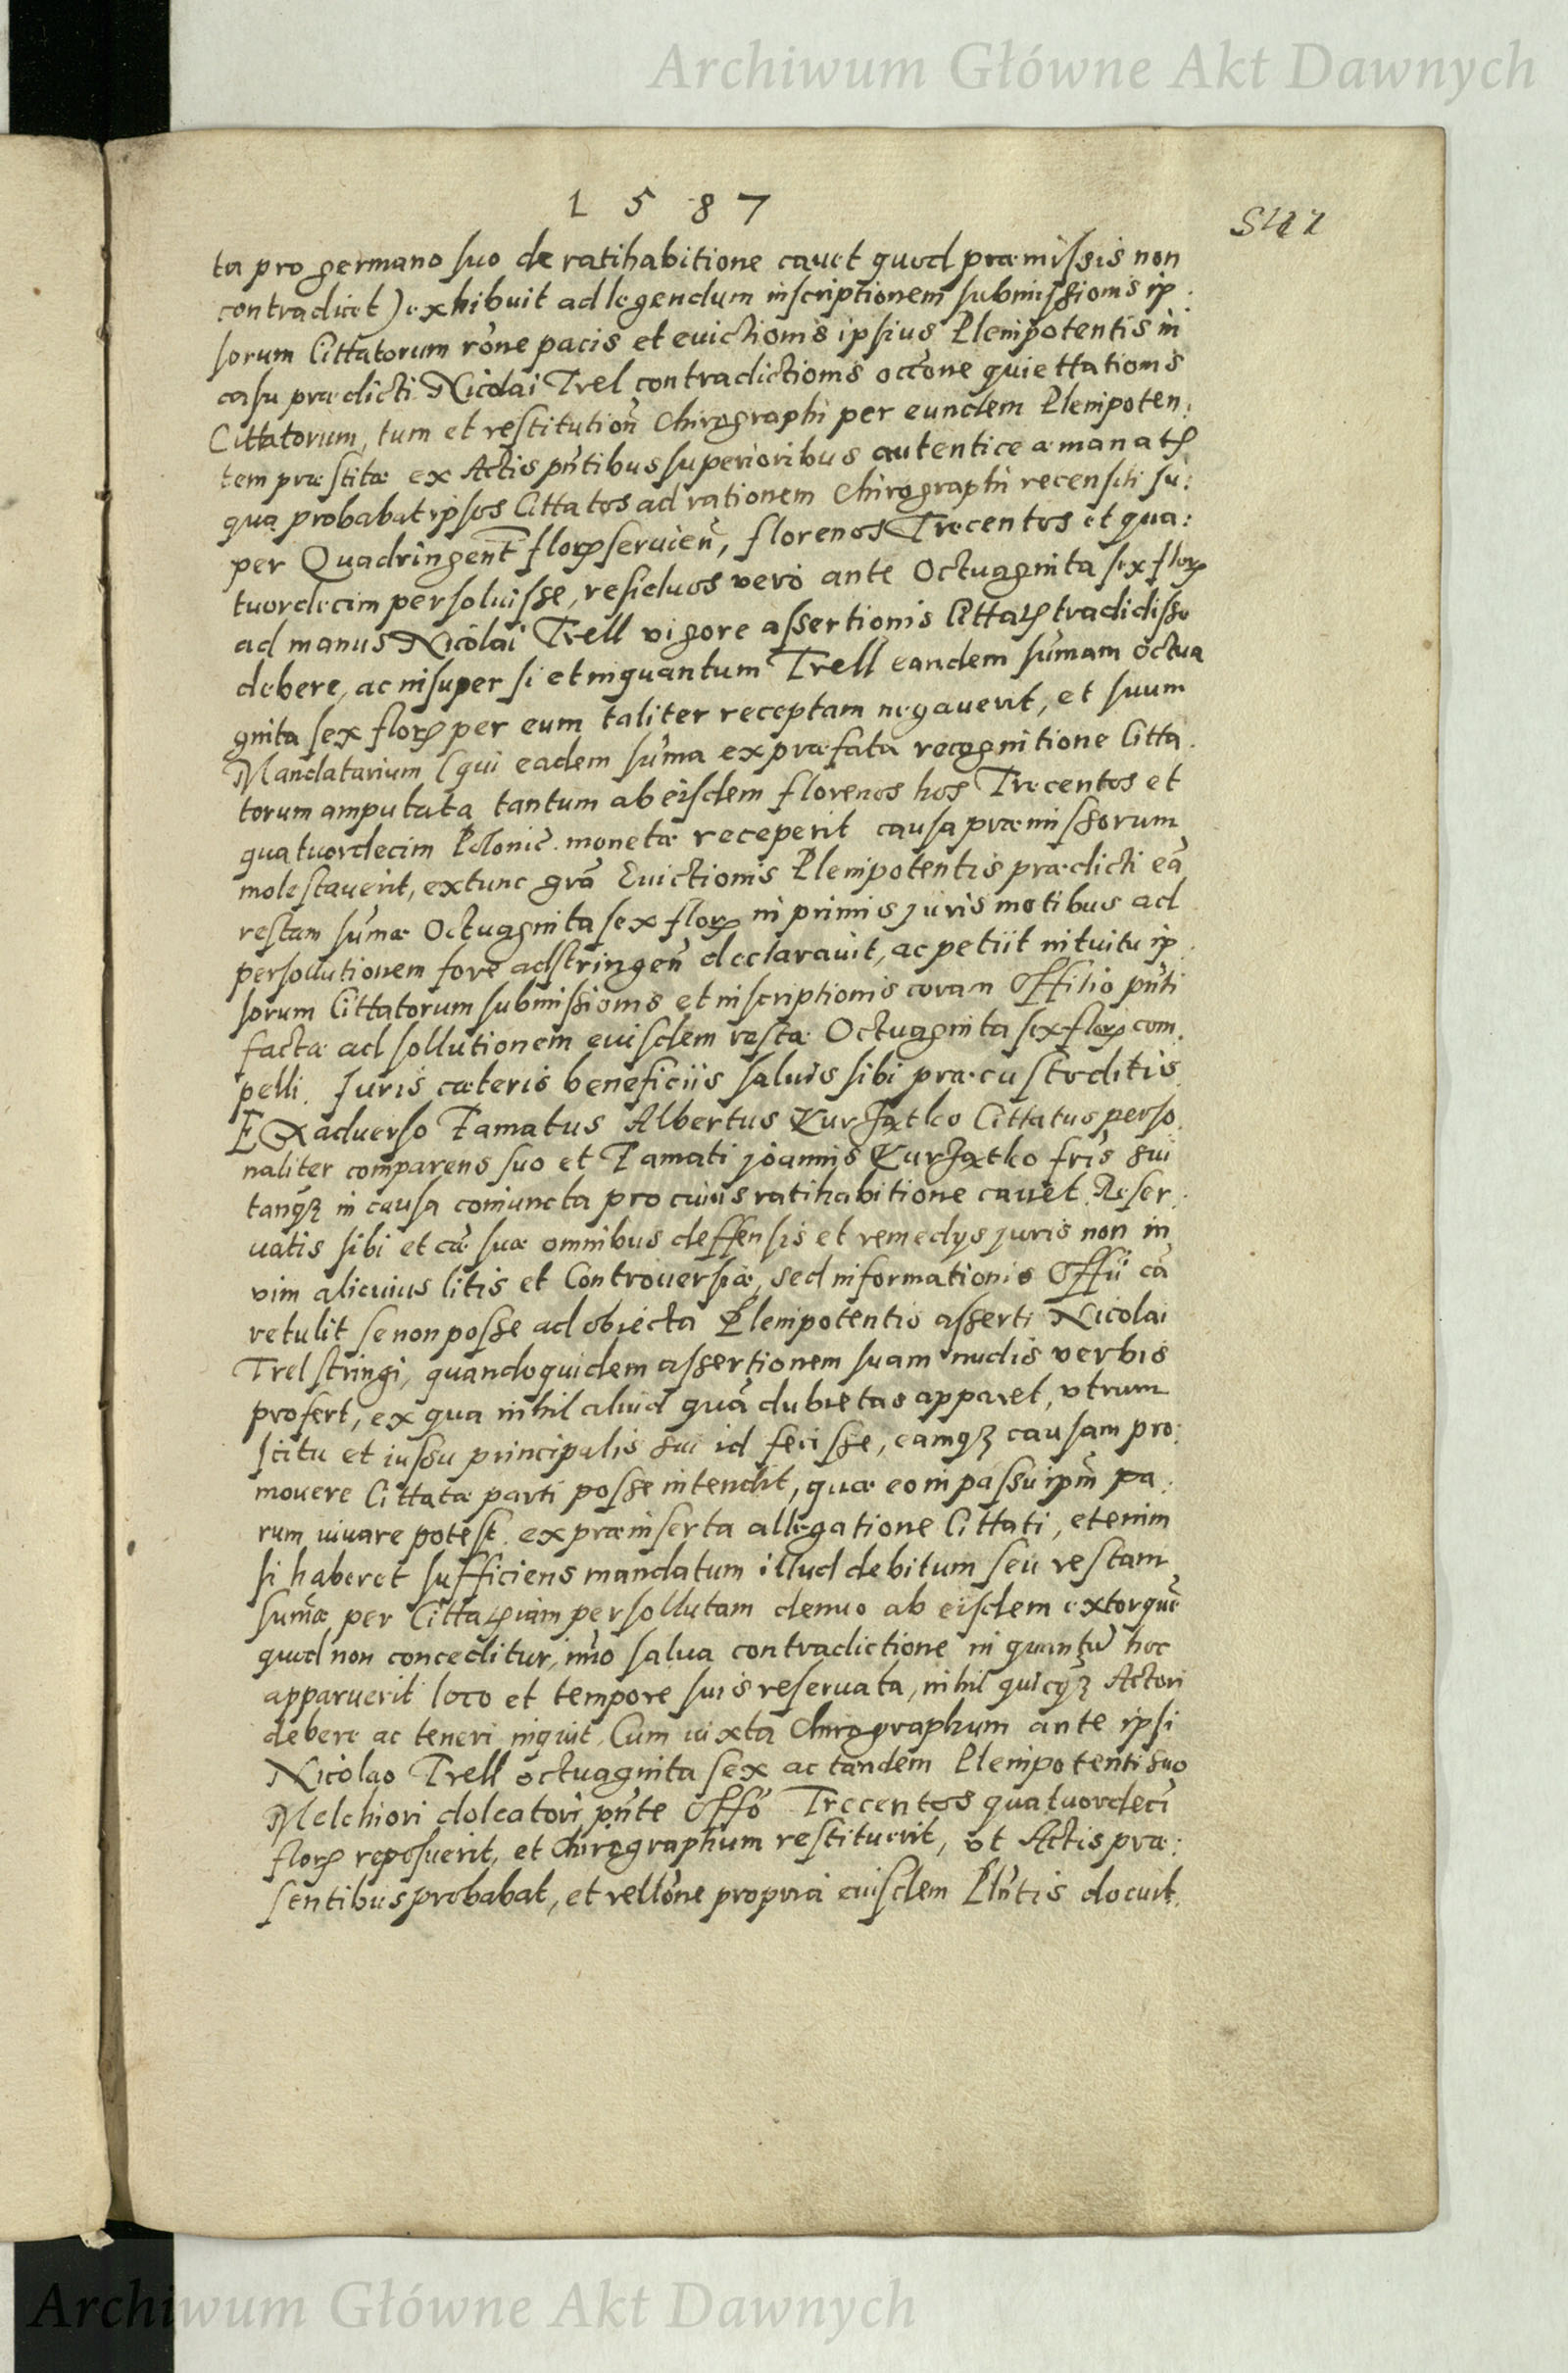 Archiwum Główne Akt Dawnych
1587
ta pro germano suo de ratihabitione cauet quod præmissis non
contradicet) exhibuit ad legendum inscriptionem submissionis ip.
sorum Cittatorum rõne pacis et euictionis ipsius Plenipotentis in
casu prædicti Nicolai Trel contradictionis occõne quiettationis
Cittatorum, tum et restitutioñ Chirographi per eundem Plenipoten:
tem præstitæ ex Actis pñtibus superioribus autentice æmanatꝝ
qua probabat ipsos Cittatos ad rationem Chirographi recensiti su:
per Quadringent florꝝ seruieñ, florenos Trecentos et qua:
tuordecim persoluisse, residuos vero ante Octuaginta sex florꝝ
ad manus Nicolai Trell vigore assertionis Cittatꝝ tradidisse
debere, ac insuper si et inquantum Trell eandem sũmam octua
ginta sex florꝝ per eum taliter receptam negauerit, et suum
Mandatarium (qui eadem sũma ex præfata recognitione Citta.
torum amputata tantum ab eisdem florenos hos Trecentos et
quatuordecim Polonic. monetæ receperit causa præmissorum
molestauerit, extunc grã Euictionis Plenipotentis prædicti eã
restam sũmæ Octuaginta sex florꝝ in primis juris motibus ad
persollutionem fore adstringeñ declarauit, ac petiit intuitu ip.
sorum Cittatorum submissionis et inscriptionis coram Offitio pñti
factæ ad sollutionem euisdem restæ Octuaginta sex florꝝ com.
pelli. Iuris cæteris beneficiis saluis sibi præcustoditis.
EX aduerso Famatus Albertus Kurſatko Cittatus perso.
naliter comparens suo et Famati joannis Kurſatko fris sui
tanqꝫ in causa coniuncta pro cuius ratihabitione cauet. Reser.
uatis sibi et cæ suæ omnibus deffensis et remedys juris non in
vim alicuius litis et Controuersiæ, sed informationis Offii cã
retulit se non posse ad obiecta Plenipotentis asserti Nicolai
Trel stringi, quandoquidem assertionem suam nudis verbis
profert, ex qua nihil aliud quã dubietas apparet, vtrum
scitu et iussu principalis sui id fecisse, eamqꝫ causam pro:
mouere Cittatæ parti posse intendit, quæ eo in passu ipm̃ pa.
rum iuuare potest. ex præinserta allegatione Cittati, etenim
si haberet sufficiens mandatum illud debitum seu restam
sum̃æ per Cittatꝝ iam persollutam denuo ab eisdem extorquẽ
quod non conceditur, im̃o salua contradictione in quantũ hoc
apparuerit loco et tempore suis reseruata, nihil quicqꝫ Actori
debere ac teneri inquit. Cum iuxta Chirographum ante ipsi
Nicolao Trell octuaginta sex ac tandem Plenipotenti suo
Melchiori doleatori pñte Offõ Trecentos quatuordeci
florꝝ reposuerit, et Chirographum restituerit, vt Actis præ:
sentibus probabat, et rellõne propria euisdem Plñtis docuit.
Archiwum Główne Akt Dawnych